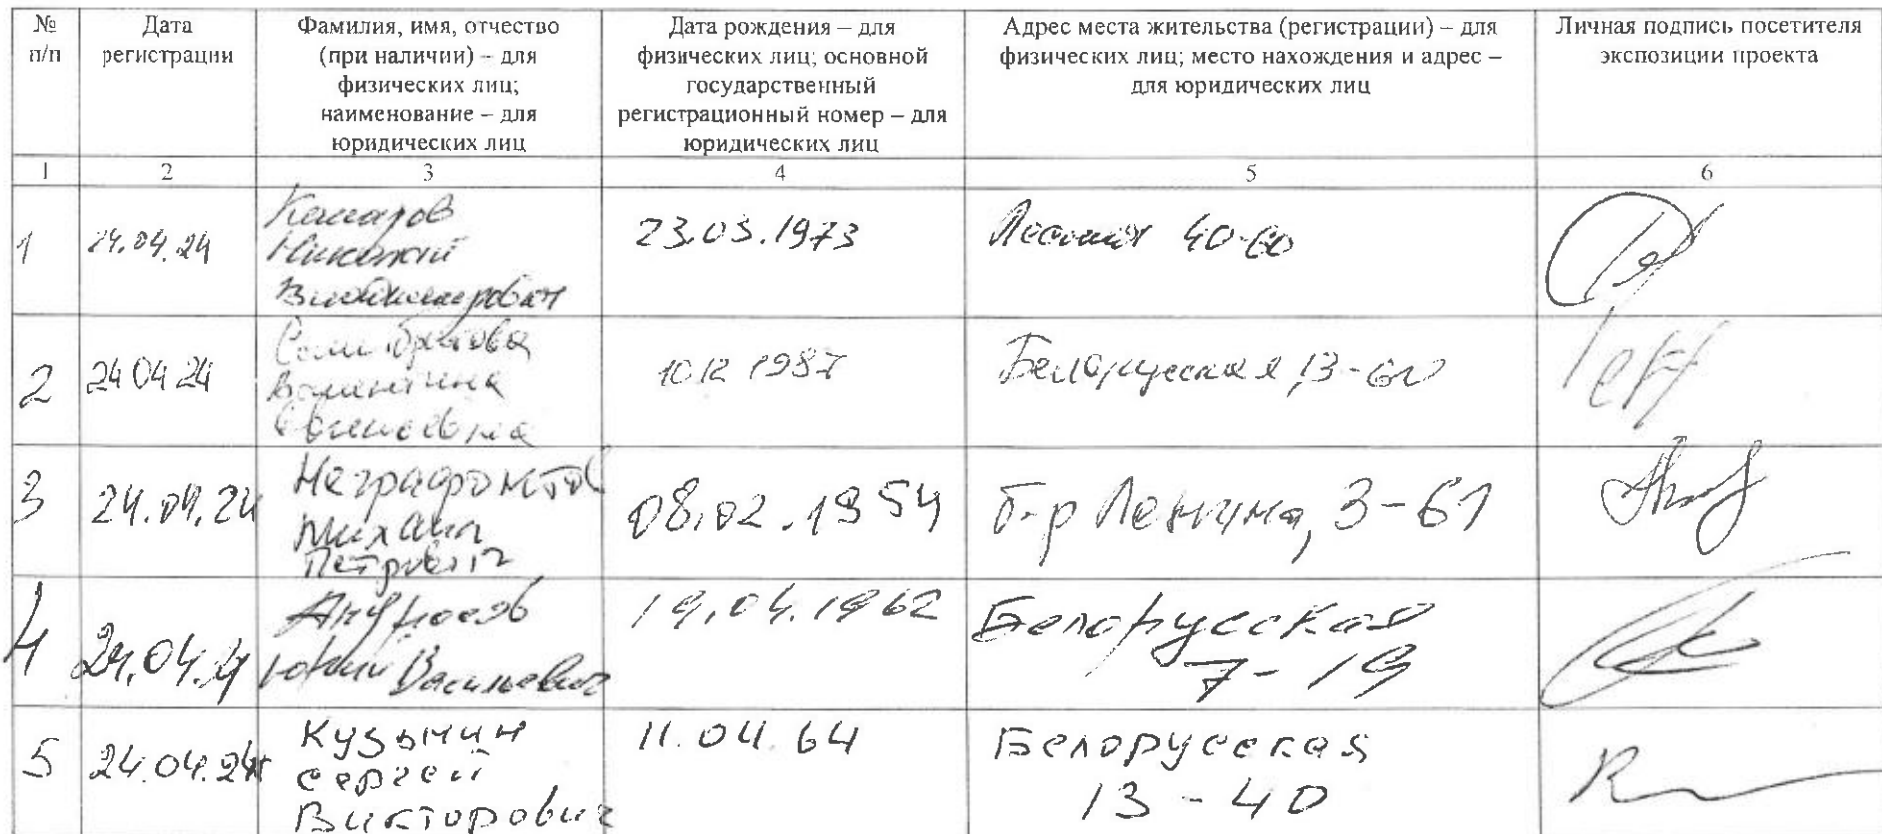 № п/п
Дата регистрации
Фамилия, имя, отчество
(при наличии) – для
физических лиц;
наименование – для
юридических лиц
Дата рождения – для
физических лиц; основной
государственный
регистрационный номер – для
юридических лиц
Адрес места жительства (регистрации) – для
физических лиц; место нахождения и адрес –
для юридических лиц
Личная подпись посетителя
экспозиции проекта
1 2 3 4 5 6
1 24.04.24
Николай
Владимирович
23.03.1973
40-60
2 24 04 24
Валентина
Евгеньевна
10 12 1987
Белорусская 13-60
3 24.04.24
Михаил
Петрович
08.02.1954
б-р Ленина, 3-61
4 24.04.24
Юрий Васильевич
19.04.1962
Белорусская
7-19
5 24.04.24
Кузьмин
Сергей
Викторович
11.04.64
Белорусская
13-40